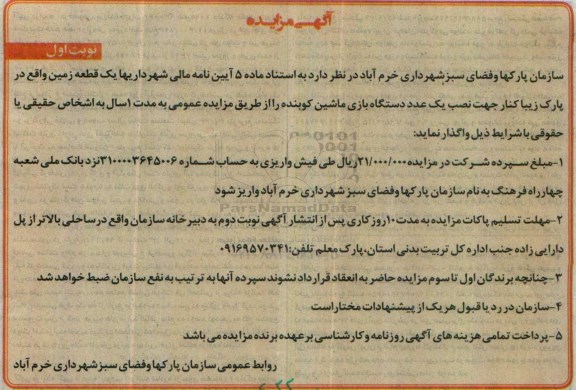 آگهی مزایده
نوبت اول
سازمان پارکها وفضای سبز شهرداری خرم آباد در نظر دارد به استناد ماده ۵ آیین نامه مالی شهرداریها یک قطعه زمین واقع در
پارک زیبا کنار جهت نصب یک عدد دستگاه بازی ماشین کوبنده را از طریق مزایده عمومی به مدت ۱سال به اشخاص حقیقی یا
حقوقی با شرایط ذیل واگذار نماید:
۱-مبلغ سپرده شرکت در مزایده ۲۱/۰۰۰/۰۰۰ریال طی فیش واریزی به حساب شماره ۳۱۰۰۰۰۳۶۴۵۰۰۶نزد بانک ملی شعبه
چهارراه فرهنگ به نام سازمان پارکها وفضای سبز شهرداری خرم آباد واریز شود
۲-مهلت تسلیم پاکات مزایده به مدت ۱۰روز کاری پس از انتشار آگهی نوبت دوم به دبیر خانه سازمان واقع در ساحلی بالاتر از پل
دارایی زاده جنب اداره کل تربیت بدنی استان، پارک معلم تلفن:۰۹۱۶۹۵۷۰۳۴۱
۳-چنانچه برندگان اول تا سوم مزایده حاضر به انعقاد قرارداد نشوند سپرده آنها به ترتیب به نفع سازمان ضبط خواهد شد
۴-سازمان در رد یا قبول هر یک از پیشنهادات مختار است
۵-پرداخت تمامی هزینه های آگهی روزنامه و کارشناسی بر عهده برنده مزایده می باشد
روابط عمومی سازمان پارکها وفضای سبز شهرداری خرم آباد
ParsNamadData